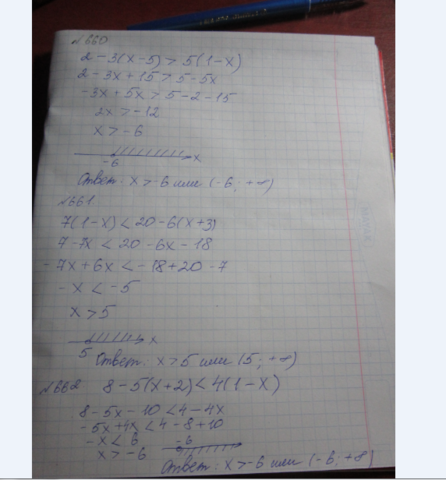 №660
2-3(x-5)>5(1-x)
2-3x+15>5-5x
-3x+5x>5-2-15
2x>-12
x>-6
-6 x
Ответ: x>-6 или (-6; +∞)
№661
7(1-x)<20-6(x+3)
7-7x<20-6x-18
-7x+6x<-18+20-7
-x<-5
x>5
5 x
Ответ: x>5 или (5; +∞)
№662 8-5(x+2)<4(1-x)
8-5x-10<4-4x
-5x+4x<4-8+10
-x<6 -6
x>-6
Ответ: x>-6 или (-6; +∞)